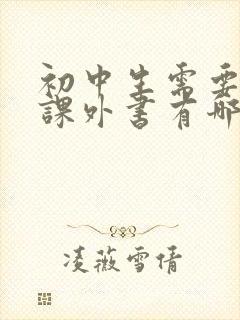 初中生需要
課外書有哪
凌薇雪倩